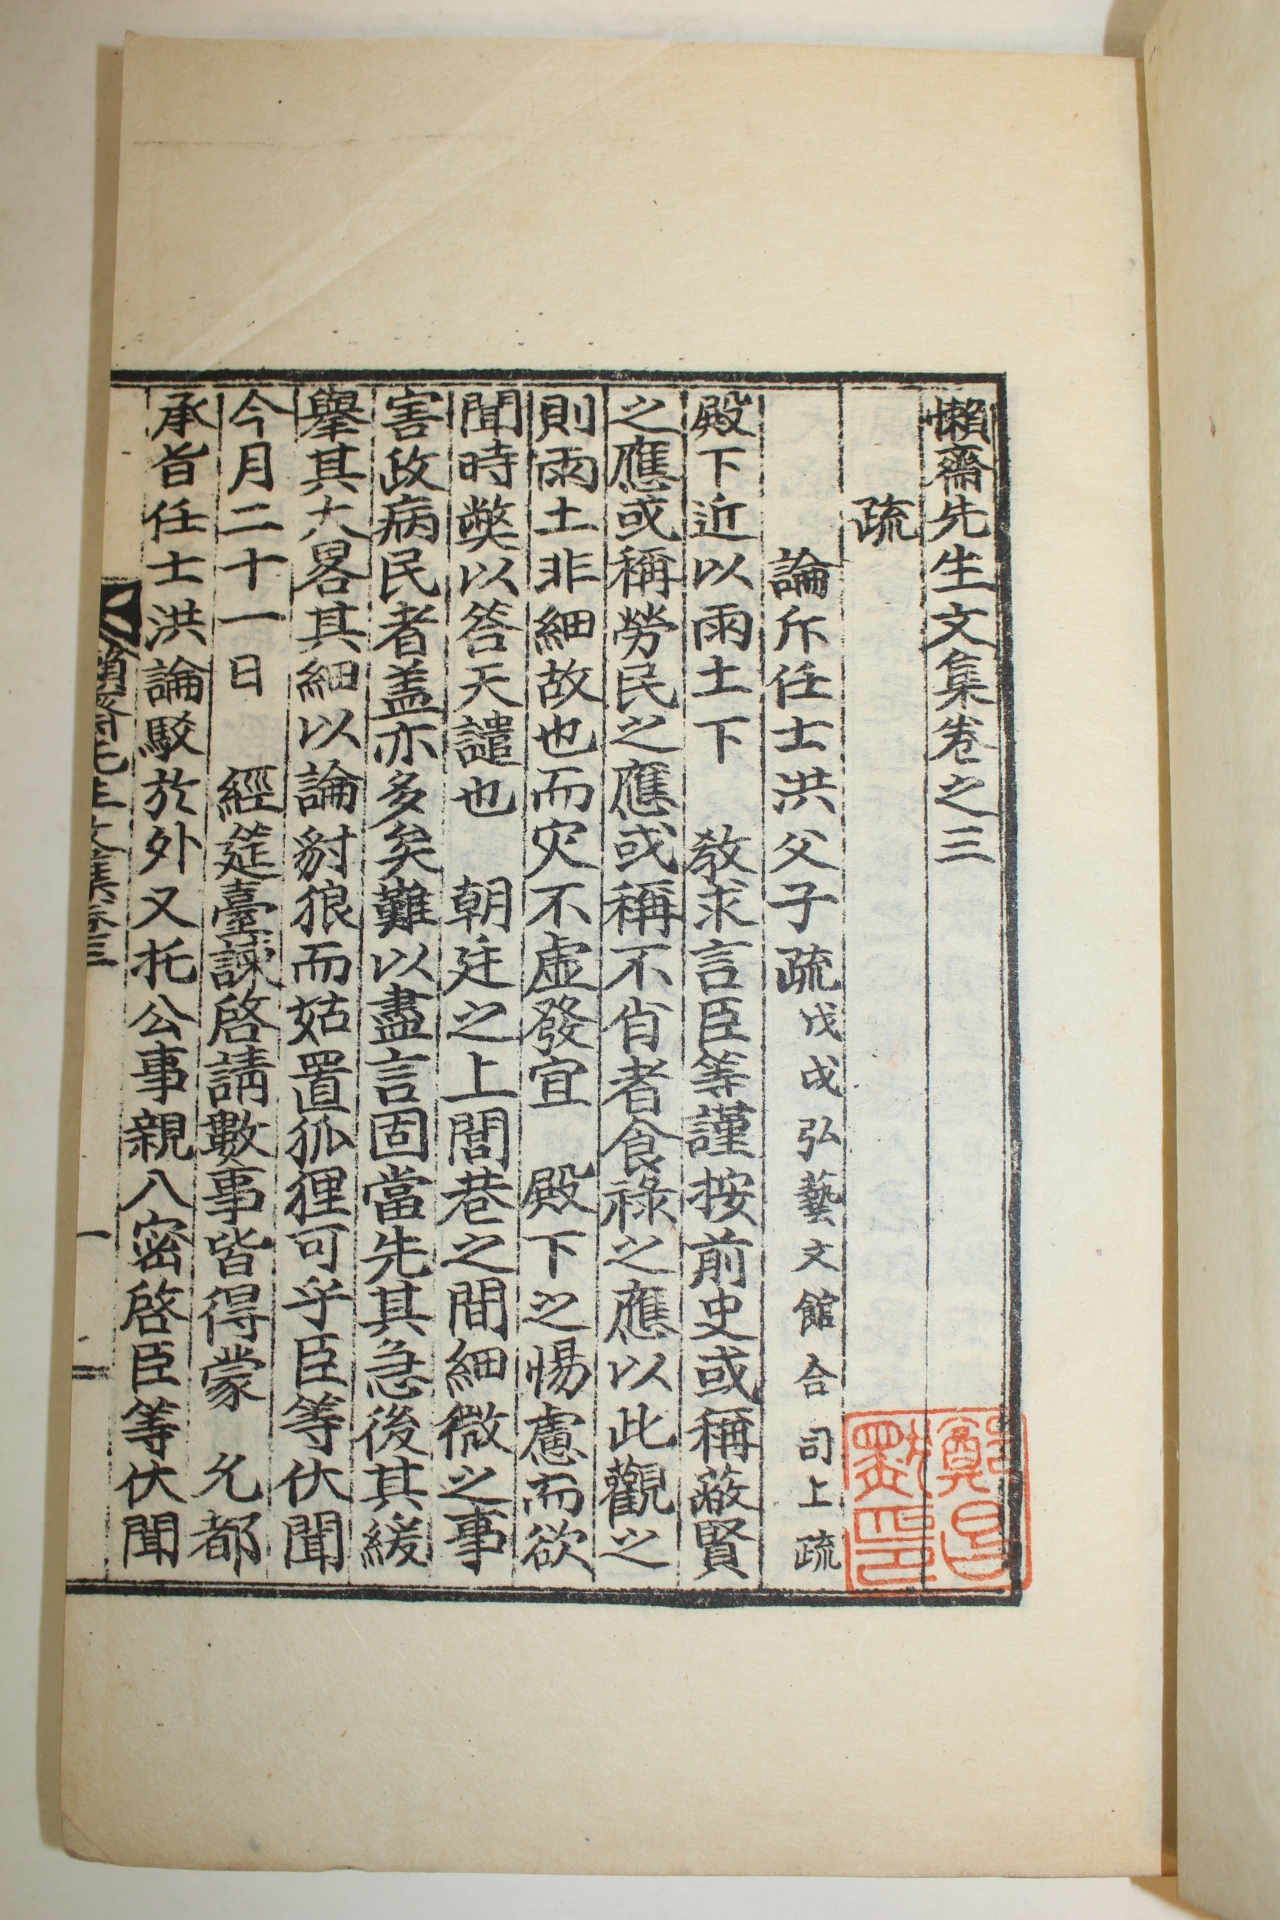 懶齋先生文集卷之三
疏
論斥任士洪父子疏戊戌弘藝文館合司上疏
殿下近以雨土下 敎求言臣等謹按前史或稱蔽賢
之應或稱勞民之應或稱不肖者食祿之應以此觀之
則雨土非細故也而灾不虛發宜 殿下之惕慮而欲
聞時獘以答天譴也 朝廷之上閭巷之間細微之事
害政病民者盖亦多矣難以盡言固當先其急後其緩
擧其大畧其細以論豺狼而姑置狐狸可乎臣等伏聞
今月二十一日 經筵臺諫啓請數事皆得蒙 允都
承旨任士洪論駁於外又托公事親入密啓臣等伏聞
懶齋先生文集卷三
一